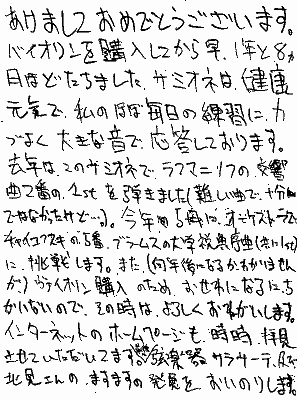 あけましておめでとうございます。
バイオリンを購入してから早、1年と8ヵ
月ほどたちました。サミオネは、健康
元気で、私のほぼ毎日の練習に、力
づよく大きな音で、応答しております。
去年は、このサミオネで、ラフマニノフの交響
曲2番の、1stを弾きました(難しい曲で、十分
ではなかったけど…)。今年の5月に、オーケストラで
チャイコフスキの5番、ブラームスの大学祝典序曲(共に1st)
に、挑戦します。また、(何年後になるかわかりません
が)ヴァイオリン購入のため、おせわになるにち
がいないので、その時は、よろしくおねがいします。
インターネットのホームページも、時時、拝見
させていただいてます。弦楽器サラサーテ、
北見さんの、ますますの発展をおいのりします。